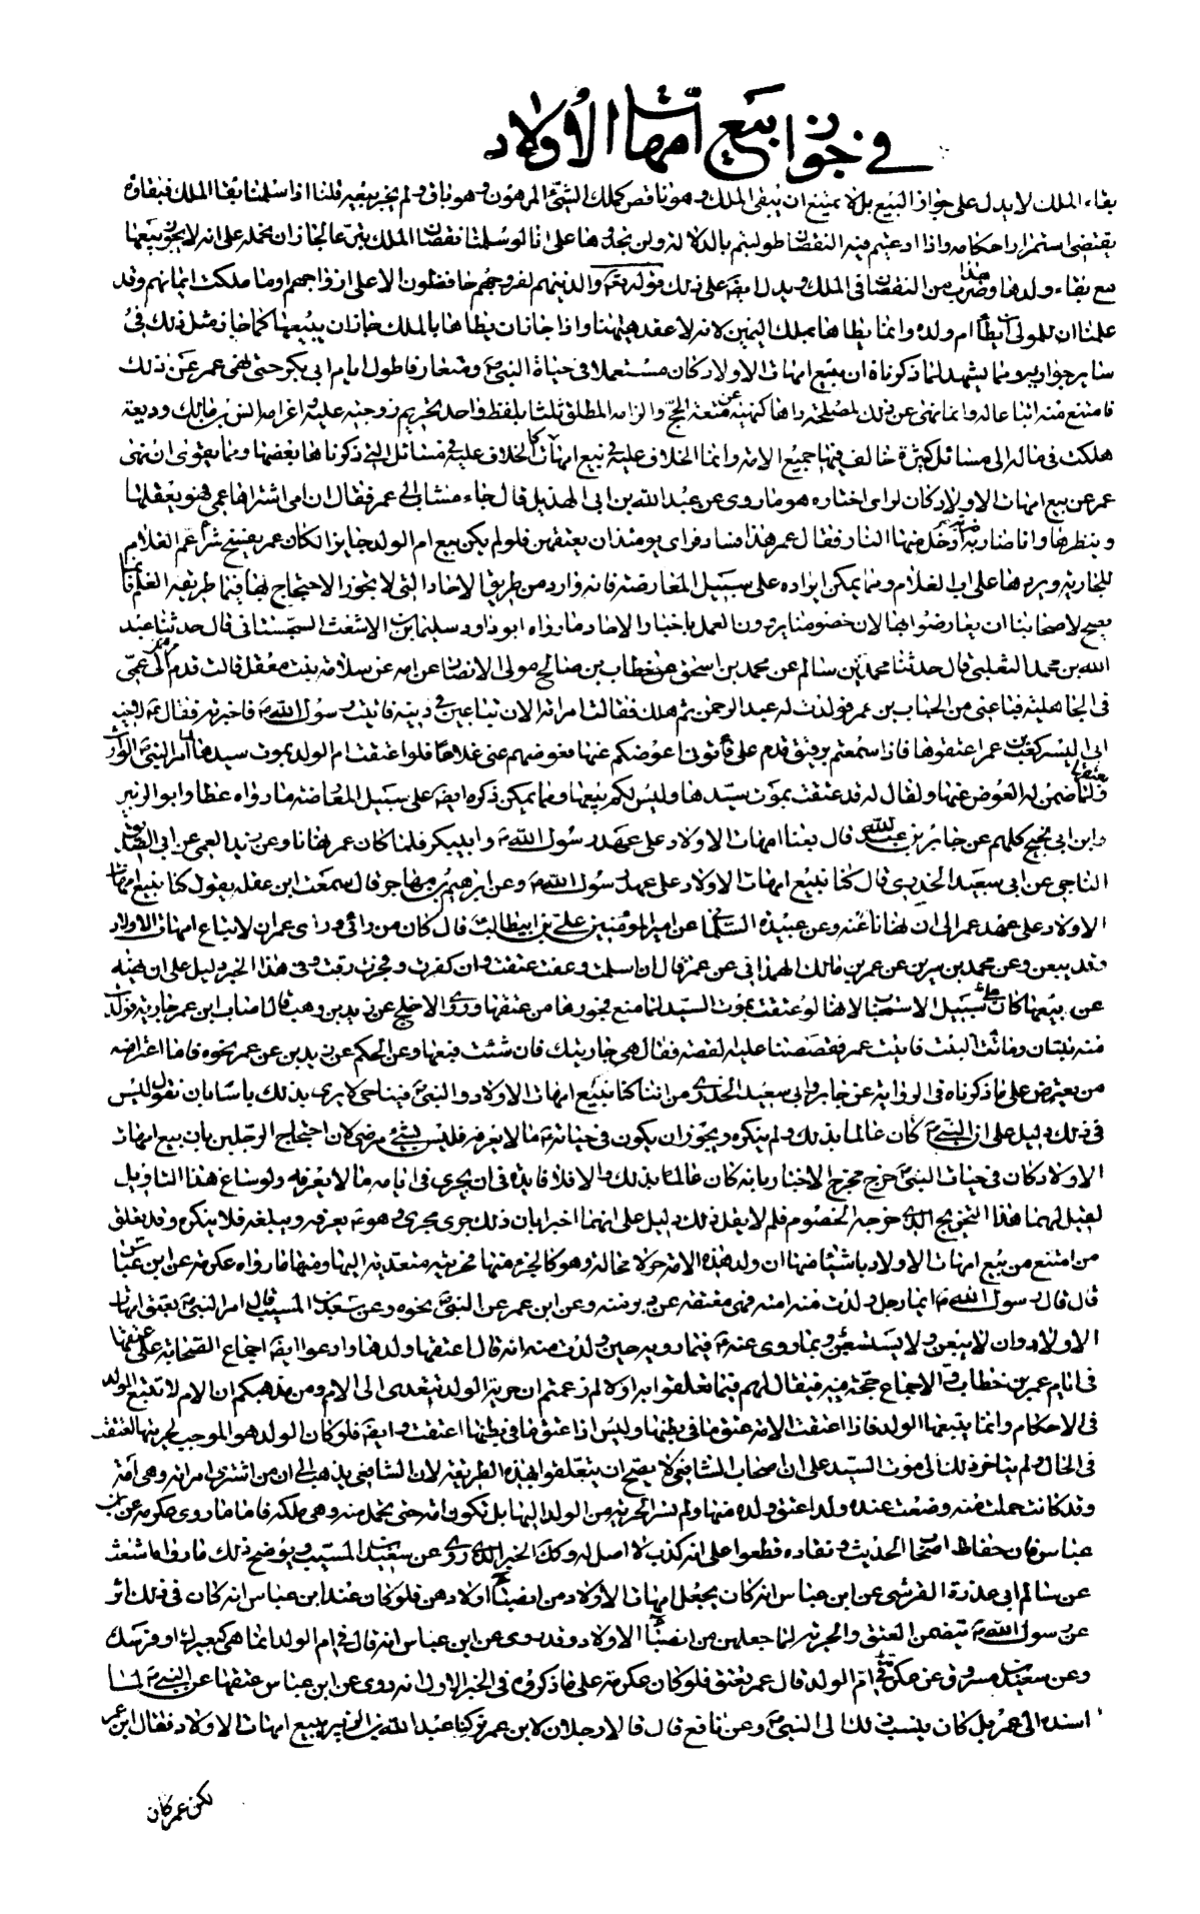 في جواز بيع امهات الاولاد
بقاء الملك لا يدل على جواز البيع بل لا يمتنع ان يبقى الملك وهو ناقص كملك الشئ المرهون وهو باق ولم يجز بيعه قلنا اذا سلمنا بقاء الملك فبقاؤه
يقتضى استمرار احكامه واذا ادعيتم فيه النقصان طولبتم بالدلالة ولن تجدوها على انا لو سلمنا نقصان الملك جاز ان نحمله على انه لا يجوز بيعها
مع بقاء ولدها وهذا ضرب من النقصان فى الملك ويدل ايضا على ذلك قوله تعالى والذين هم لفروجهم حافظون الا على ازواجهم او ما ملكت ايمانهم وقد
علمنا ان للمولى ان يطأ ام ولده وانما يطاها بملك اليمين لانه لا عقد هيهنا واذا جاز ان يطاها بالملك جاز ان يبيعها كما جاز مثل ذلك فى
سائر جواريه ومما يشهد لما ذكرناه ان بيع امهات الاولاد كان مستعملا فى حياة النبى ومتعارفا طول ايام ابى بكر حتى نهى عمر عن ذلك
فامتنع منه اتباعا له وانما نهى عن ذلك لمصلحة راها كنهيه عن متعة الحج والزامه المطلق ثلثا بلفظ واحد تحريم زوجته عليه واغرامه انس بن مالك وديعة
هلكت فى ماله الى مسائل كثيرة خالف فيها جميع الامة وانما الخلاف عليه فى بيع امهات كالخلاف عليه فى مسائل التى ذكرناها بعضها ومما يقوى ان نهى
عمر عن بيع امهات الاولاد كان لراى اختاره هو ما روى عن عبد الله بن ابى الهذيل قال جاء شاب الى عمر فقال ان امى اشتراها عمى فهو يعقلها
وينظرها وانا ضاربه ضربة ادخل منها النار فقال عمر هذا فساد فراى يومئذ ان يعتقهن فلو لم يكن بيع ام الولد جايزا لكان عمر يفسخ شراء عم الغلام
للجارية ويردها على اب الغلام ومما يمكن ايراده على سبيل المعارضة فانه وارد من طريق الاحاد التى لا يجوز الاحتجاج بها فيما طريقه العلم فانما
يصح لاصحابنا ان يعارضوا بها لان خصومنا يرون العمل باخبار الاحاد ما رواه ابو داود سليمان بن الاشعث السجستانى قال حدثنا عبد
الله بن محمد النفيلى قال حدثنا محمد بن سالم عن محمد بن اسحق عن خطاب بن صالح مولى الانصار عن امه عن سلامة بنت معقل قالت قدم بى عمى
فى الجاهلية فباعنى من الحباب بن عمر فولدت له عبد الرحمن ثم هلك فقالت امراته الان تباعين فى دينه فاتيت رسول الله فاخبرته فقال لاخيه
ابى اليسر كعب بن عمر اعتقوها فاذا سمعتم برقيق قدم على فأتونى اعوضكم عنها فعوضهم عنى غلاما فلو اعتقت ام الولد بموت سيدها لما امر النبى الوارث بعتقها
ولما ضمن له العوض عنها ولقال له قد عتقت بموت سيدها وليس لكم بيعها ومما يمكن ذكره ايضا على سبيل المعارضة ما رواه عطا وابو الزبير
وابن ابى نجيح كلهم عن جابر بن عبد الله قال بعنا امهات الاولاد على عهد رسول الله وابى بكر فلما كان عمر نهانا وعن زيد العمى عن ابى الصديق
الناجى عن ابى سعيد الخدرى قال كنا نبيع امهات الاولاد على عهد رسول الله وعن ابرهيم بن مهاجر قال سمعت ابن عقله يقول كنا نبيع امهات
الاولاد على عهد عمر الى ان نهانا عنه وعن عبيدة السلمانى عن امير المؤمنين على بن ابيطالب قال كان من رائى وراى عمر ان لا تباع امهات الاولاد
وقد يبعن وعن محمد بن سيرين عن عمر بن مالك الهمذانى عن عمر قال ان اسلمت وعفت عتقت وان كفرت وفجرت رقت وفى هذا الخبر دليل على ان نهيه
عن بيعها كان على سبيل الاستحباب لانها لو عتقت بموت السيد لما منع فجورها من عتقها وروى الاجلح عن زيد بن وهب قال اصاب ابن عمر جارية فولدت
منه بنتان وماتت البنت فاتيت عمر فقصصتنا عليه القصة فقال هى جاريتك فان شئت فبعها وعن الحكم عن زيد بن عن عمر نحوه فاما اعتراضه
من يعترض على ما ذكرناه فى الرواية عن جابر وابى سعيد الخدرى من اننا كنا نبيع امهات الاولاد والنبى فينا حى لا يرى بذلك باسا بان نقول ليس
فى ذلك دليل على ان النبى كان عالما بذلك ولم ينكره ويجوز ان يكون فى حياته ما لا يعرفه فليس بشئ مرضى لان احتجاج الرجلين بان بيع امهات
الاولاد كان فى حيات النبى خرج مخرج الاخبار بانه كان عالما بذلك والا فلا فايدة فى ان يجرى فى ايامه ما لا يعرفه ولو ساغ هذا التاويل
لقيل لهما هذا التخريج الذى خرجه الخصوم فلم لا يقل ذلك دليل على انهما اخبرا بان ذلك جرى مجرى وهو يعرفه ويبلغه فلا ينكره وقد يعلق
من امتنع من بيع امهات الاولاد باشياء منها ان ولد هذه الامة حر لا محالة وهو كالجزء منها فحريته متعدية اليها ومنها ما رواه عكرمة عن ابن عباس
قال قال رسول الله ايما رجل ولدت منه امته فهى معتقة عن دبر منه وعن ابن عمر عن النبى نحوه وعن سعيد بن المسيب قال امر النبى بعتق امهات
الاولاد وان لا يبعن ولا يستسعين وبما روى عنه فيما رويه حين ولدت منه انه قال اعتقها ولدها وادعوا ايضا اجماع الصحابة على عتقها
فى ايام عمر بن خطاب والاجماع حجة فيه فيقال لهم فيما تعلقوا به اولا لم زعمتم ان حرية الولد تتعدى الى الام ومن مذهبكم ان الام لا تتبع الولد
فى الاحكام وانما يتبعها الولد فاذا اعتقت الامة عتق ما فى بطنها وليس اذا عتق ما فى بطنها اعتقت وايضا فلو كان الولد هو الموجب لحريتها لعتقت
فى الحال ولم يتاخر ذلك الى موت السيد على ان اصحاب الشافعى لا يصح ان يتعلقوا بهذه الطريقة لان الشافعى يذهب الى ان من اشترى امراته وهى امة
وقد كانت حملت منه وضعت عنده ولدا عتق ولده منها ولم تسر الحرية من الولد اليها بل تكون امة حتى تحمل منه وهى ملكه فاما ما روى عكرمة عن ابن
عباس فان حفاظ اصحاب الحديث ونقاده قطعوا على انه كذب لا اصل له وكك الخبر الذى روى عن سعيد بن المسيب ويوضح ذلك ما رواه اشعث
عن سالم ابى عذرة القرشى عن ابن عباس انه كان يجعل امهات الاولاد من انصباء اولادهن فلو كان عند ابن عباس انه كان فى ذلك اثر
عن رسول الله يتضمن العتق والحرية لما جعلهن من انصباء الاولاد وقد روى عن ابن عباس انه قال فى ام الولد انما هى كبعيرك او فرسك
وعن سعيد بن مسروق عن عكرمة فى ام الولد قال عمر تعتق فلو كان عكرمة على ما ذكروه فى الخبر الاول انه روى عن ابن عباس عتقها عن النبى لما
اسنده الى عمر بل كان ينسب ذلك الى النبى وعن نافع قال قالا رجلان لابن عمر تركنا عبد الله بن الزبير يبيع امهات الاولاد فقال ابن عمر
لكن عمر كان